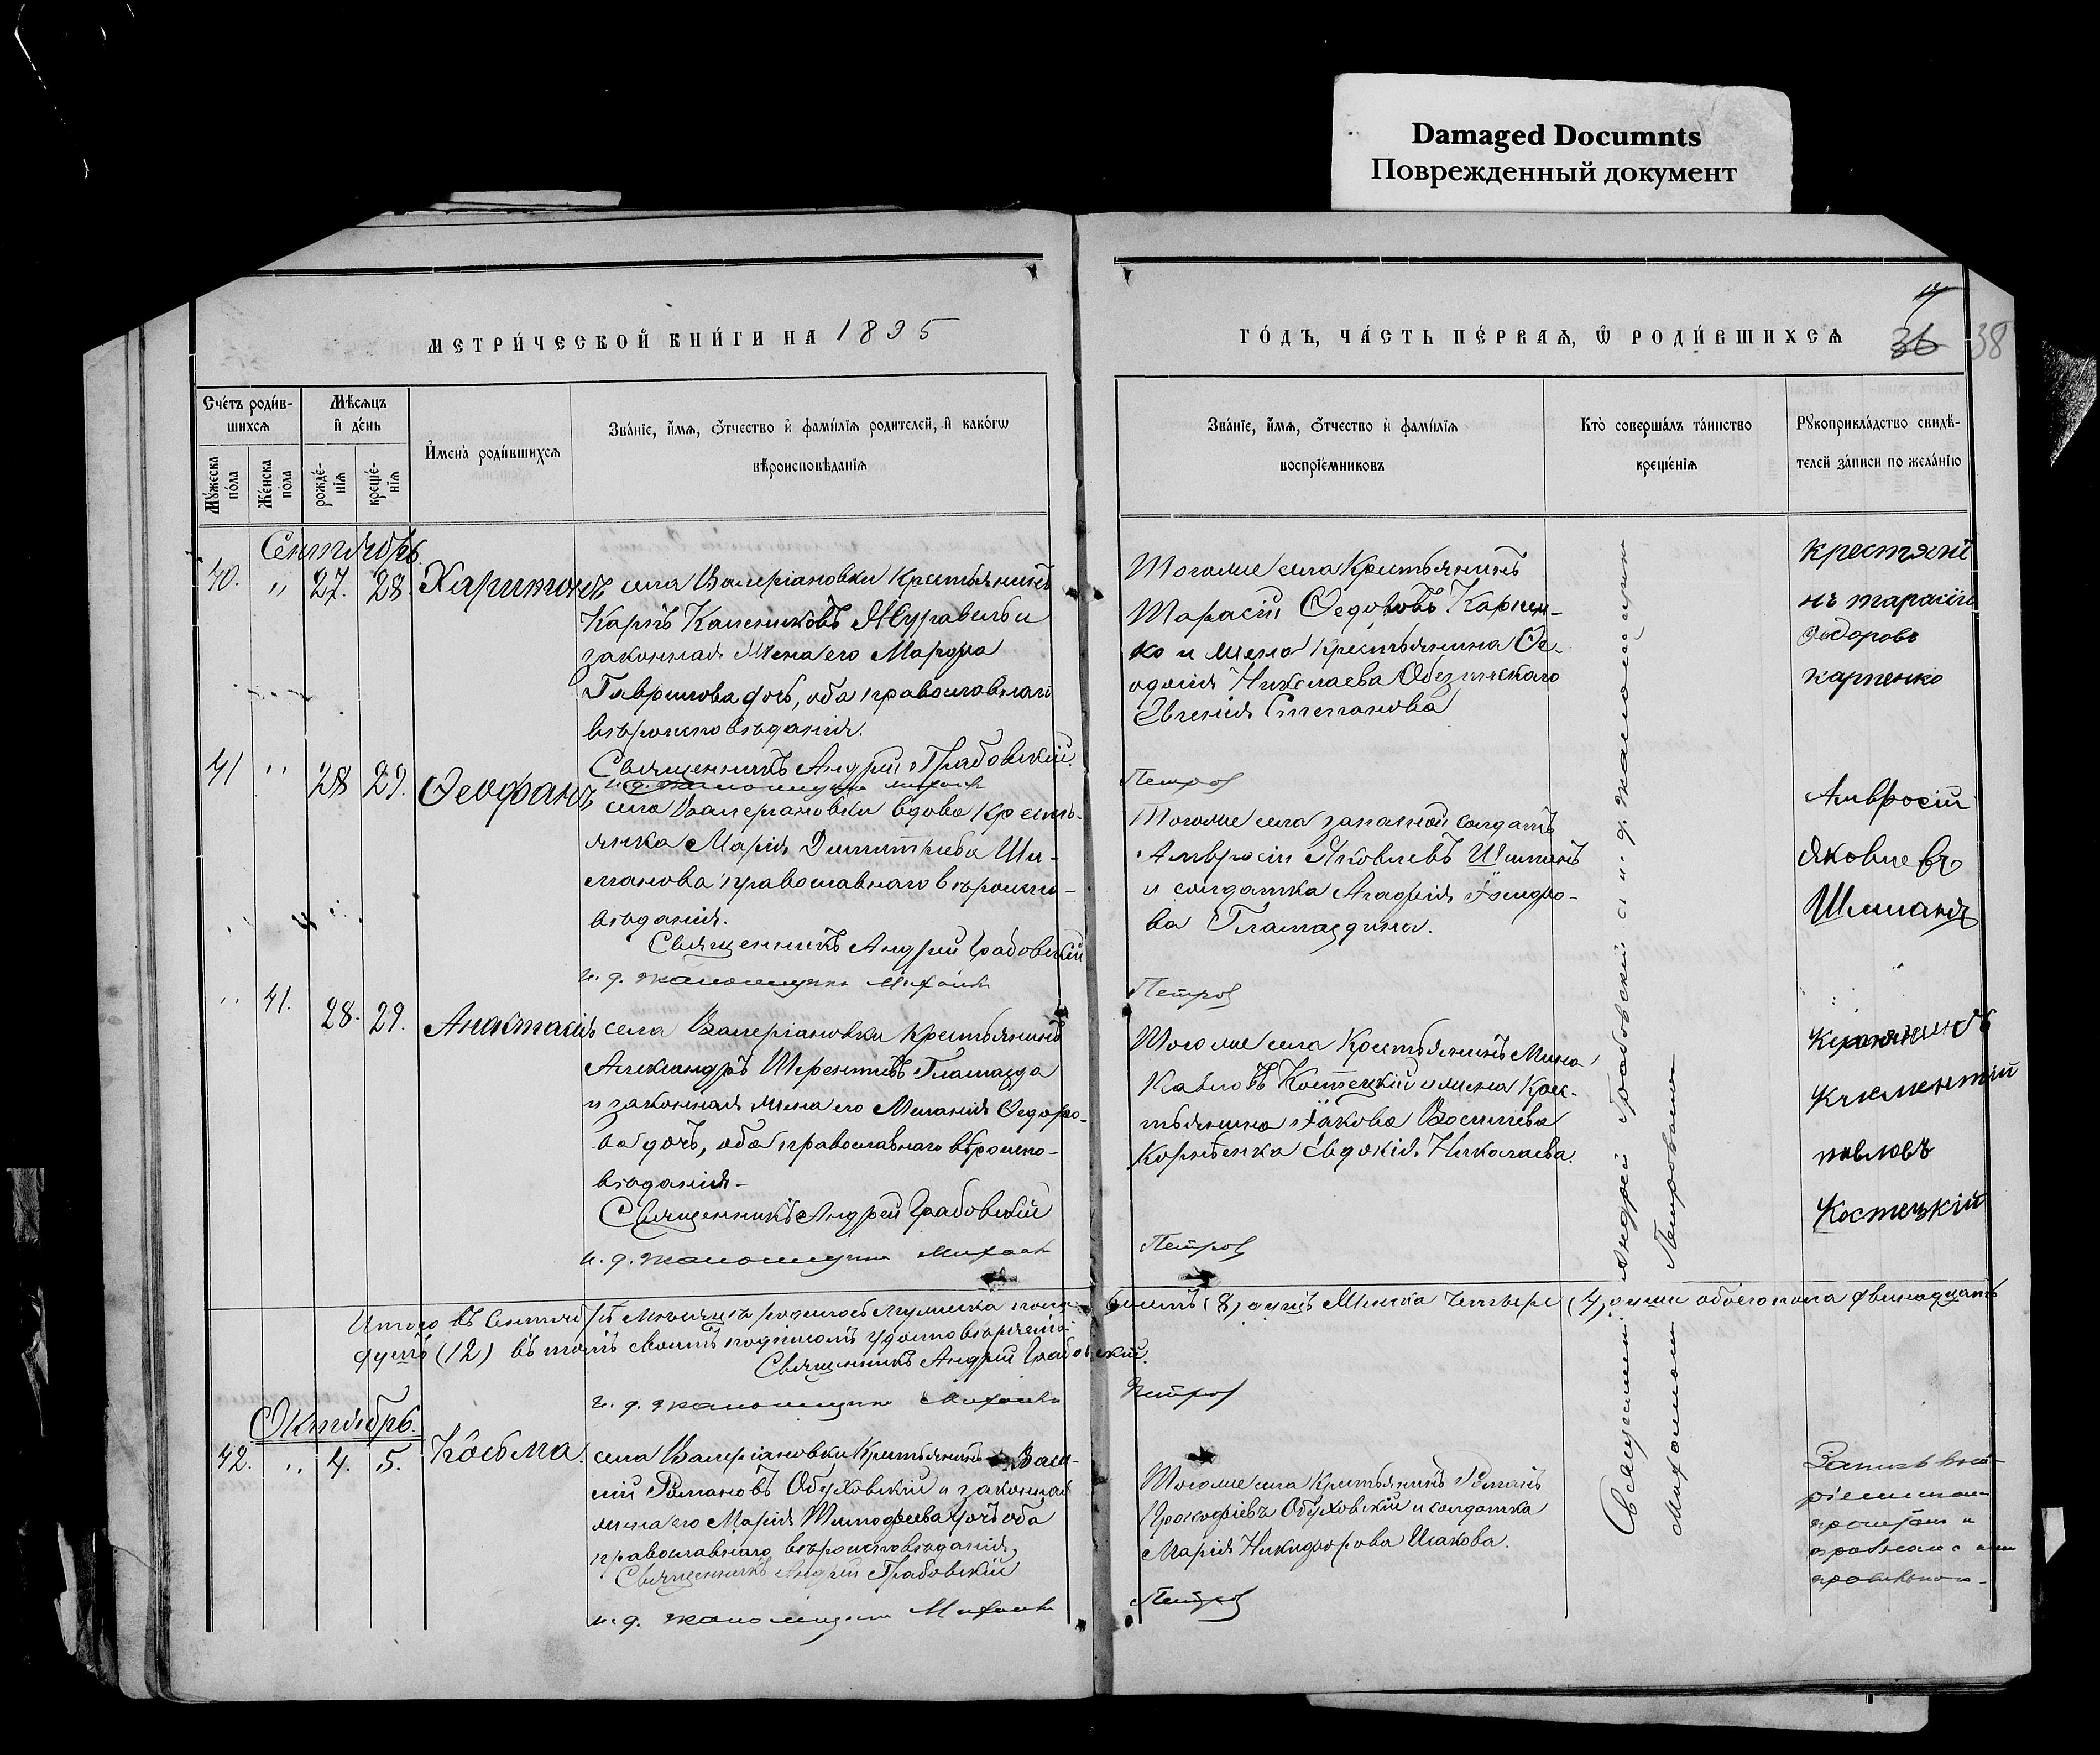 Damaged Documnts
Поврежденный документ
МЕТРИ́ЧЕСКОЙ КНИ́ГИ НА 1895
ГО́ДЪ, ЧА́СТЬ ПЕ́РВАѦ, Ѡ РОДИ́ВШИХСѦ
36 38
Сче́тъ роди́в-
шихсѧ
Мѣ́сѧцъ
и̂ де́нь
Мꙋ́жеска
по́ла
Же́нска
по́ла
рожде́-
нїѧ
креще́-
нїѧ
И҆мена̀ роди́вшихсѧ
Зва́нїе, и҆́мѧ, ѻ҆́тчество и҆ фами́лїѧ родителей, и҆ како́гѡ
вѣроисповѣ́данїѧ
Зва́нїе, и҆́мѧ, ѻ҆́тчество и҆ фами́лїѧ
воспрїе́мниковъ
Кто̀ соверша́лъ та́инство
креще́нїѧ
Рꙋкоприкла́дство свидѣ́-
телей за́писи по жела́нїю
Сентябрь
40. " 27. 28. Харитонъ
села Валеріановки крестьянинъ
Карпъ Калениковъ Журавель и
законная жена его Марфа
Гаврилова дочь, оба православнаго
вѣроисповѣданія.
Священникъ Андрей Грабовскій.
и. д. псаломщика Михаилъ
Тогоже села Крестьянинъ
Тарасій Ѳедоровъ Карпен-
ко и жена крестьянина Ѳе-
одосія Николаева Обезинскаго
Евгенія Степанова
Петров
крестяни
нъ тарасій
федоровъ
карпенко
41 " 28 29. Ѳеофанъ
села Валеріановки вдова крестья-
янка Марія Димитріева Ши-
манова православнаго вѣроиспо-
вѣданія.
Священникъ Андрей Грабовскій
и. д. псаломщика Михаилъ
Тогоже села запасной солдатъ
Амвросій Яковлевъ Шиманъ
и солдатка Агафія
ва Гламаздина.
Петров
Амвросій
Яковлевъ
Шиманъ
" 41. 28. 29. Анастасія
села Валеріановки крестьянинъ
Александръ Терентіевъ Гламазда
и законная жена его Меланія Ѳедоро-
ва дочь, оба православнаго вѣроиспо-
вѣданія
Священникъ Андрей Грабовскій
и. д. псаломщика Михаилъ
Тогоже села Крестьянинъ
Павловъ Костецкій и жена крес-
тьянина Іакова Васильева
Корнѣенка Евдокія Николаева.
Петров
Климентій
павловъ
Костецкій
Итого въ Сентябрѣ Мѣсяцѣ родилось мужеска пола восемь (8) душъ Женска четыре (4) души обоего пола двенадцать
душъ (12) въ томъ своимъ подписомъ удостовѣряемъ
Священникъ Андрей Грабовскій.
и. д. псаломщика Михаилъ Петров
Октябрь.
42. " 4. 5. Косьма.
села Валеріановки Крестьянинъ Васи-
лій Романовъ Обуховскій и законная
жена его Марія Тимофеева дочь оба
православнаго вѣроисповѣданія,
Священникъ Андрей Грабовскій
и. д. псаломщика Михаилъ
Тогоже села крестьянинъ Романъ
Прокофіевъ Обуховскій и солдатка
Марія Никифорова Исакова.
Петров
Священникъ Андрей Грабовскій съ и. д. псаломщика
Михаиломъ Петровымъ